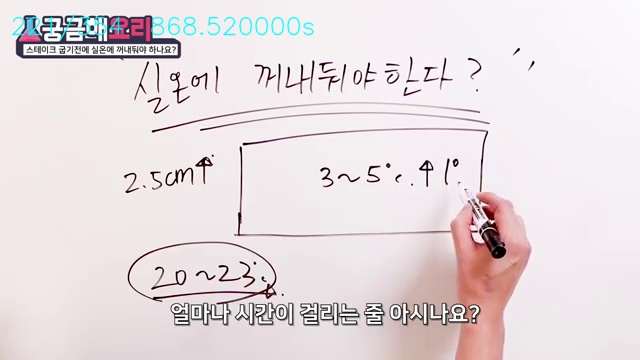 868.520000s
궁금해요리
스테이크 굽기전에 실온에 꺼내둬야 하나요?
실온에 꺼내둬야한다?
2.5cm↑
3~5°c.↑1°
20~23°c
얼마나 시간이 걸리는 줄 아시나요?